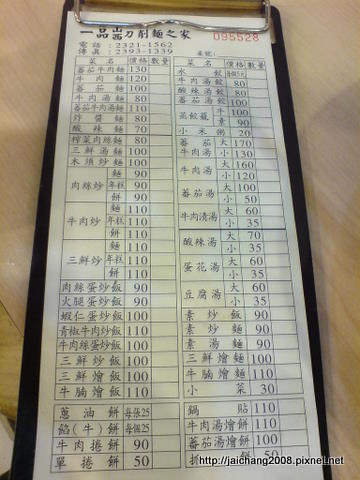 一品山西刀削麵之家
電話：2321-1562
傳真：2393-1339
095528
桌號：
菜名 價格 數量
番茄牛肉麵 130
牛肉麵 120
番茄麵 100
牛肉湯麵 80
番茄牛肉湯麵 110
炸醬麵 80
酸辣麵 70
榨菜肉絲麵 80
三鮮湯麵 100
木須炒麵 100
肉絲炒 麵 90
年糕 90
餅 90
牛肉炒 麵 110
年糕 110
餅 110
三鮮炒 麵 110
年糕 110
餅 110
肉絲蛋炒飯 90
火腿蛋炒飯 90
蝦仁蛋炒飯 100
青椒牛肉炒飯 110
牛肉絲蛋炒飯 100
三鮮炒飯 100
三鮮燴飯 100
牛腩燴飯 110
蔥油餅 每張25
餡(牛)餅 每個25
牛肉捲餅 90
單捲餅 50
菜名 價格 數量
水餃
牛肉湯餃 80
酸辣湯餃 80
番茄湯餃 100
蒸餃籠
牛 100
素 90
小米粥 20
番茄牛肉湯 大 170
小 130
牛肉湯 大 160
小 120
番茄湯 大 100
小 50
牛肉清湯 大 60
小 35
酸辣湯 大 70
小 35
蛋花湯 大 60
小 35
豆腐湯 大 60
小 35
素炒飯 90
素炒麵 90
素湯麵 90
三鮮燴麵 100
牛腩燴麵 110
小菜 30
鍋貼 110
牛肉湯燴餅 110
番茄湯燴餅 100
http://jaichang2008.pixnet.net